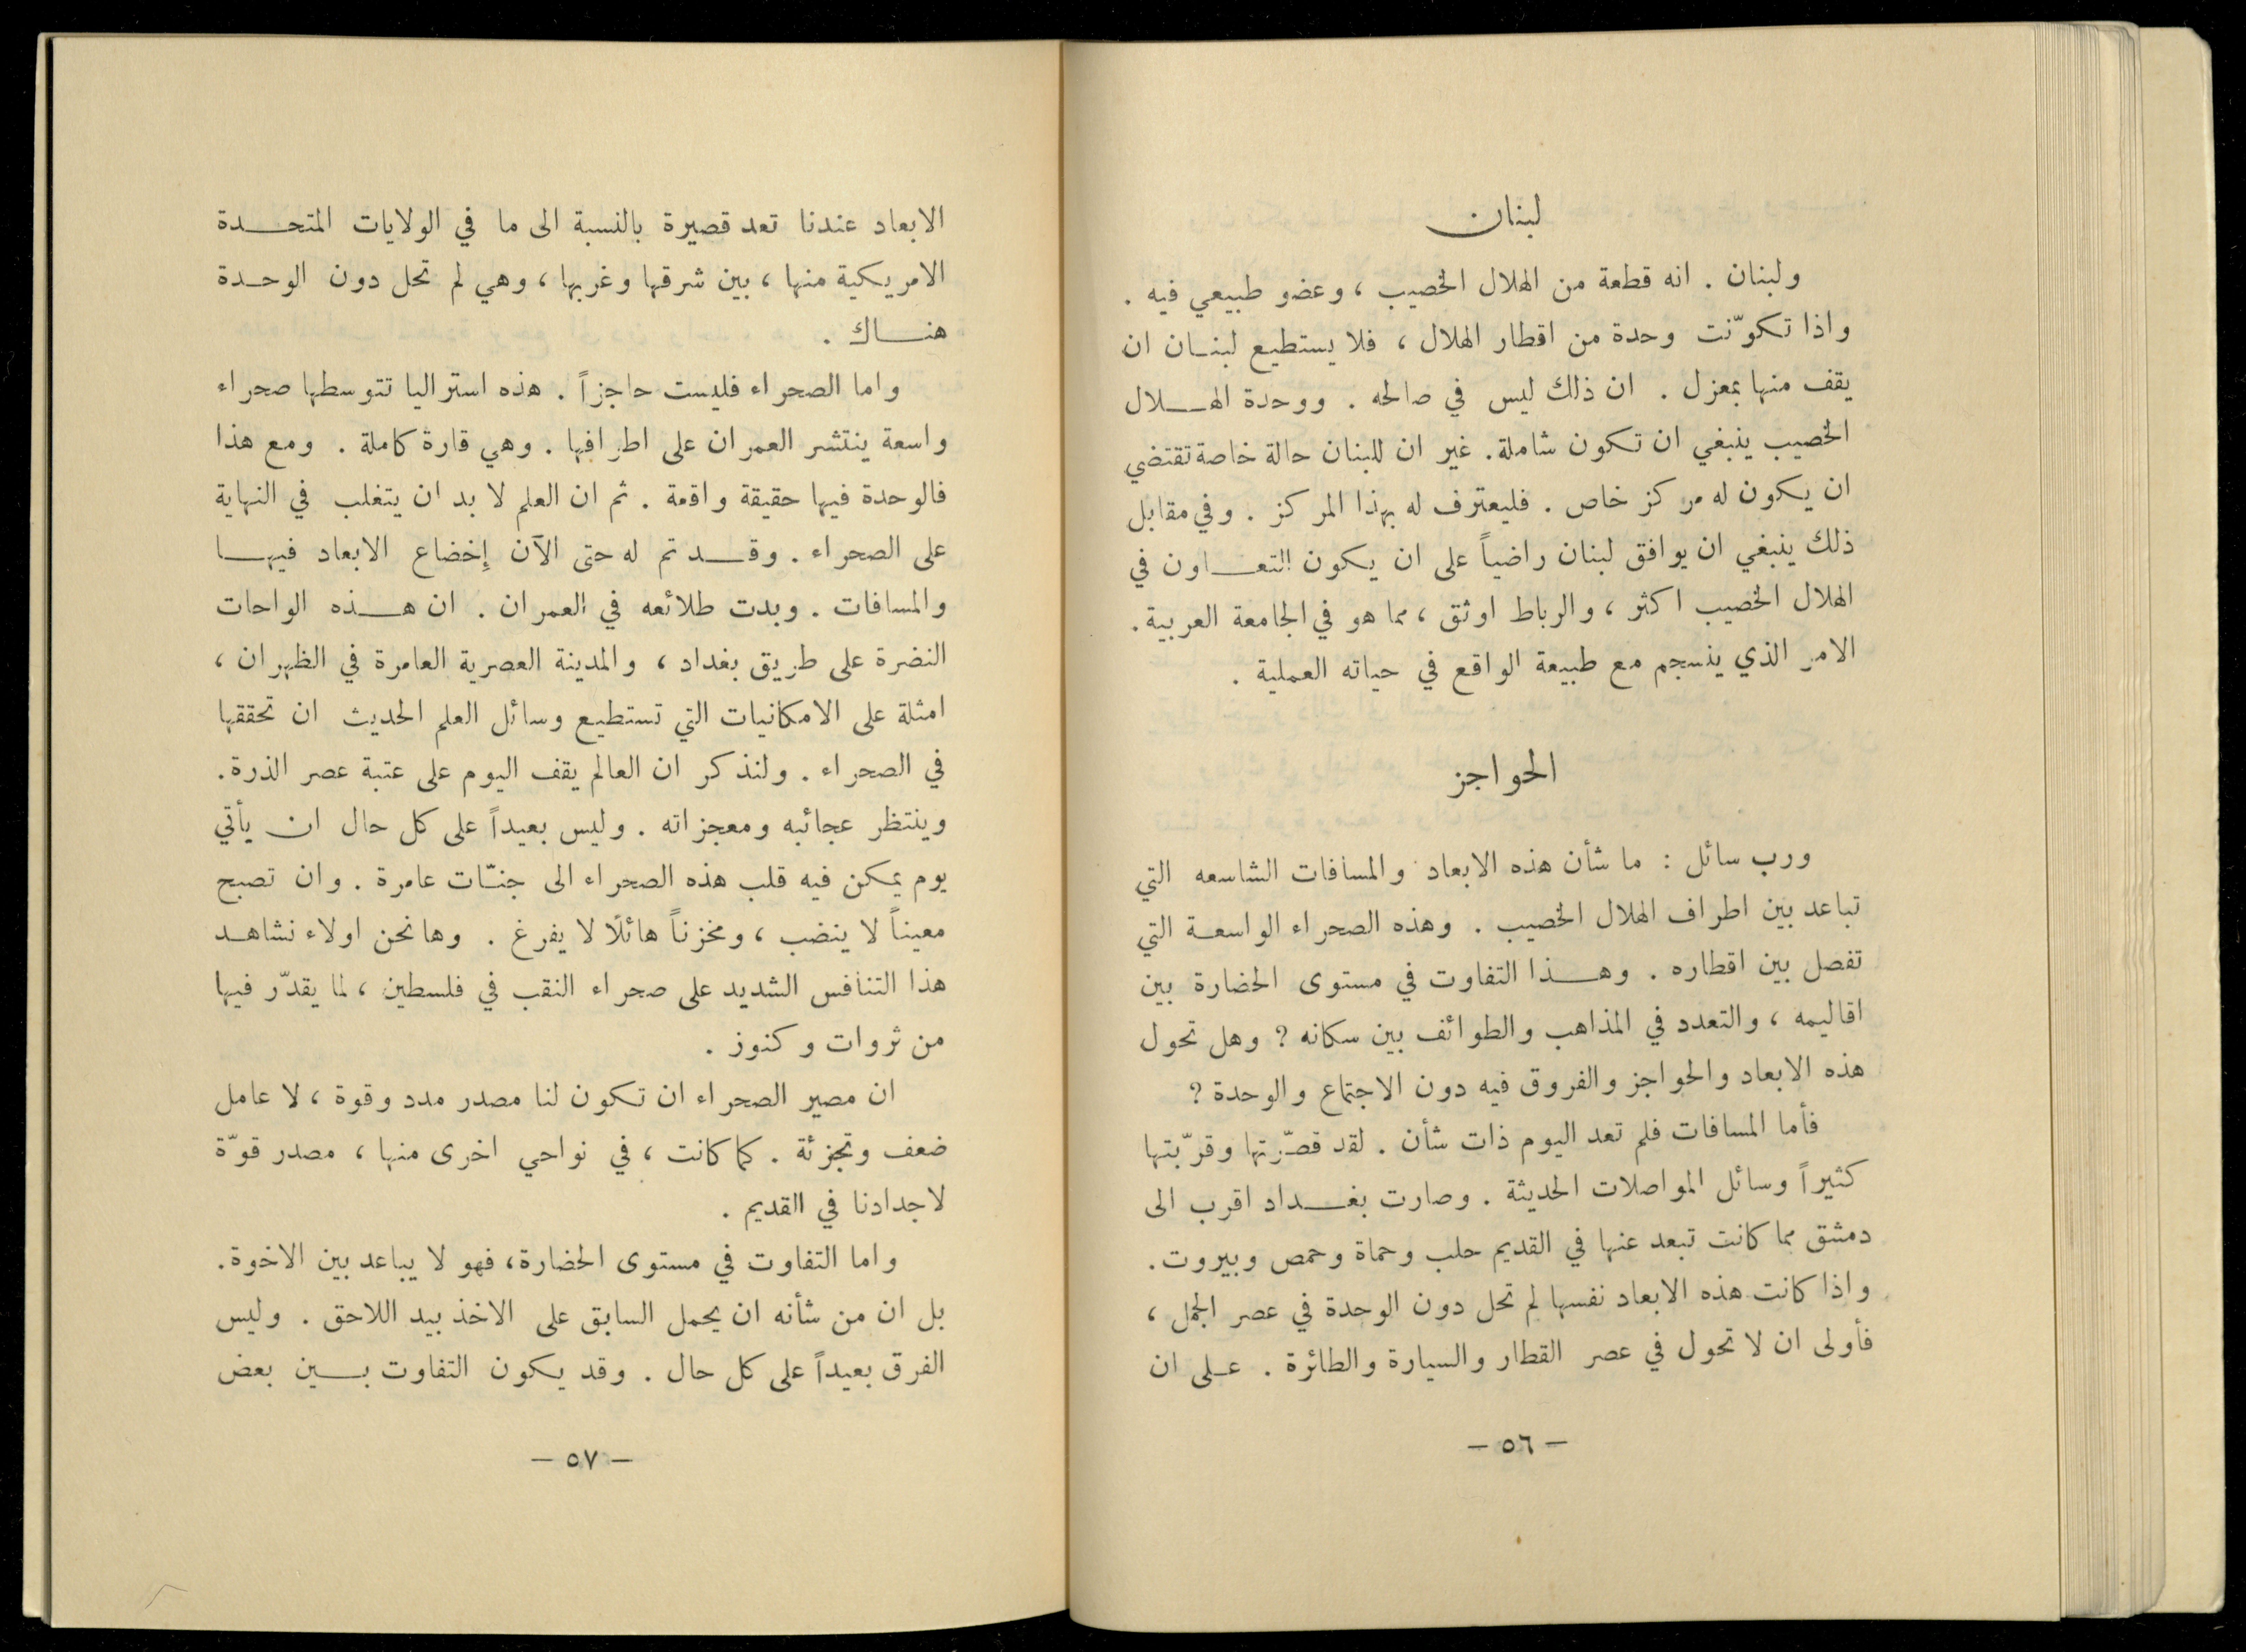 لبنان
ولبنان . انه قطعة من الهلال الخصيب ، وعضو طبيعي فيه .
واذا تكوّنت وحدة من اقطار الهلال ، فلا يستطيع لبنان ان
يقف منها بمعزل . ان ذلك ليس في صالحه . ووحدة الهلال
الخصيب ينبغي ان تكون شاملة . غير ان للبنان حالة خاصة تقتضي
ان يكون له مركز خاص . فليعترف له بهذا المركز . وفي مقابل
ذلك ينبغي ان يوافق لبنان راضياً على ان يكون التعاون في
الهلال الخصيب اكثر ، والرباط اوثق ، مما هو في الجامعة العربية .
الامر الذي ينسجم مع طبيعة الواقع في حياته العملية .
الحواجز
ورب سائل : ما شأن هذه الابعاد والمسافات الشاسعه التي
تباعد بين اطراف الهلال الخصيب . وهذه الصحراء الواسعة التي
تفصل بين اقطاره . وهذا التفاوت في مستوى الحضارة بين
اقاليمه ، والتعدد في المذاهب والطوائف بين سكانه ؟ وهل تحول
هذه الابعاد والحواجز والفروق فيه دون الاجتماع والوحدة ؟
فأما المسافات فلم تعد اليوم ذات شأن . لقد قصّرتها وقرّبتها
كثيراً وسائل المواصلات الحديثة . وصارت بغداد اقرب الى
دمشق مما كانت تبعد عنها في القديم حلب وحماة وحمص وبيروت .
واذا كانت هذه الابعاد نفسها لم تحل دون الوحدة في عصر الجمل ،
فأولى ان لا تحول في عصر القطار والسيارة والطائرة . على ان
— ٥٦ —
الابعاد عندنا تعد قصيرة بالنسبة الى ما في الولايات المتحدة
الامريكية منها ، بين شرقها وغربها ، وهي لم تحل دون الوحدة
هناك .
واما الصحراء فليست حاجزاً . هذه استراليا تتوسطها صحراء
واسعة ينتشر العمران على اطرافها . وهي قارة كاملة . ومع هذا
فالوحدة فيها حقيقة واقعة . ثم ان العلم لا بد ان يتغلب في النهاية
على الصحراء . وقد تم له حتى الآن إخضاع الابعاد فيها
والمسافات . وبدت طلائعه في العمران . ان هذه الواحات
النضرة على طريق بغداد ، والمدينة العصرية العامرة في الظهران ،
امثلة على الامكانيات التي تستطيع وسائل العلم الحديث ان تحققها
في الصحراء . ولنذكر ان العالم يقف اليوم على عتبة عصر الذرة .
وينتظر عجائبه ومعجزاته . وليس بعيداً على كل حال ان يأتي
يوم يمكن فيه قلب هذه الصحراء الى جنّات عامرة . وان تصبح
معيناً لا ينضب ، ومخزناً هائلًا لا يفرغ . وها نحن اولاء نشاهد
هذا التنافس الشديد على صحراء النقب في فلسطين ، لما يقدّر فيها
من ثروات وكنوز .
ان مصير الصحراء ان تكون لنا مصدر مدد وقوة ، لا عامل
ضعف وتجزئة . كما كانت ، في نواحي اخرى منها ، مصدر قوّة
لاجدادنا في القديم .
واما التفاوت في مستوى الحضارة ، فهو لا يباعد بين الاخوة .
بل ان من شأنه ان يحمل السابق على الاخذ بيد اللاحق . وليس
الفرق بعيداً على كل حال . وقد يكون التفاوت بين بعض
— ٥٧ —